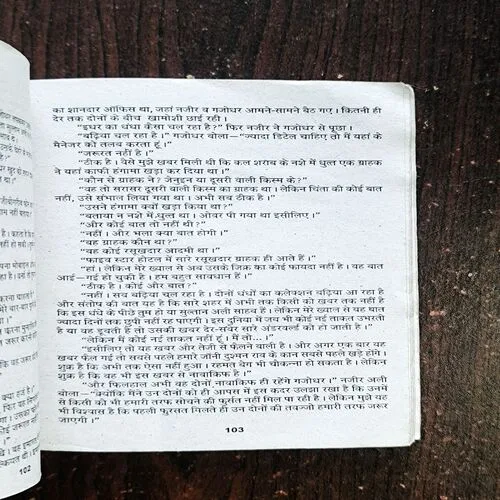 का शानदार ऑफिस था, जहां नजीर व गजोधर आमने-सामने बैठ गए। कितनी ही
देर तक दोनों के बीच खामोशी छाई रही।
"इधर का धंधा कैसा चल रहा है?" फिर नजीर ने गजोधर से पूछा।
"बढ़िया चल रहा है।" गजोधर बोला—"ज्यादा डिटेल चाहिए तो मैं यहां के
मैनेजर को तलब करता हूं।"
"जरूरत नहीं है।
"ठीक है। वैसे मुझे खबर मिली थी कि कल शराब के नशे में धुत्त एक ग्राहक
ने यहां काफी हंगामा खड़ा कर दिया था।"
"कौन से ग्राहक ने? जेनुइन या दूसरी वाली किस्म के?"
"वह तो सरासर दूसरी वाली किस्म का ग्राहक था। लेकिन चिंता की कोई बात
नहीं, उसे संभाल लिया गया था। अभी सब ठीक है।"
"उसने हंगामा क्यों खड़ा किया था?"
"बताया न नशे में धुत्त था। ओवर पी गया था इसीलिए।"
"और कोई बात तो नहीं थी?"
"नहीं। और भला क्या बात होगी।"
"वह ग्राहक कौन था?"
"वह कोई रसूखदार आदमी था।"
"फाइव स्टार होटल में सारे रसूखदार ग्राहक ही आते हैं।"
"हां। लेकिन मेरे ख्याल से अब उसके जिक्र का कोई फायदा नहीं है। वह बात
आई—गई हो चुकी है। हम बहुत सावधान हैं।"
"ठीक है। कोई और बात?"
"नहीं। सब बढ़िया चल रहा है। दोनों धंधों का कलेक्शन बढ़िया आ रहा है
और संतोष की बात यह है कि सारे शहर में अभी तक किसी को खबर तक नहीं है
कि इस धंधे के पीछे लुप्त हो या सुल्तान अली साहब हैं। लेकिन मेरे ख्याल से यह बात
ज्यादा दिनों तक छुपी नहीं रह पाएगी। इस दुनिया में जब भी कोई नई ताकत उभरती
है या वह डूबती है तो उसकी खबर देर-सवेर सारे अंडरवर्ल्ड को हो जाती है।"
"लेकिन मैं कोई नई ताकत नहीं हूं। मैं तो...।"
"इसीलिए तो यह खबर और तेजी से फैलने वाली है। और अगर एक बार वह
खबर फैल गई तो सबसे पहले हमारे जॉनी दुश्मन राव के कान सबसे पहले खड़े होंगे।
शुक्र है कि अभी तक ऐसा नहीं हुआ। रहमत बेग भी चौकन्ना हो सकता है। लेकिन
शुक्र है कि वह भी इस खबर से नावाकिफ है।
"और फिलहाल अभी वह दोनों नावाकिफ ही रहेंगे गजोधर।" नजीर अली
बोला—"क्योंकि मैंने उन दोनों को ही आपस में इस कदर उलझा रखा है कि उनमें
से किसी को भी हमारी तरफ सोचने की फुर्सत नहीं मिल पा रही है। लेकिन मुझे यह
भी विश्वास है कि पहली फुरसत मिलते ही उन दोनों की तवज्जो हमारी तरफ जरूर
जाएगी।"
103
102